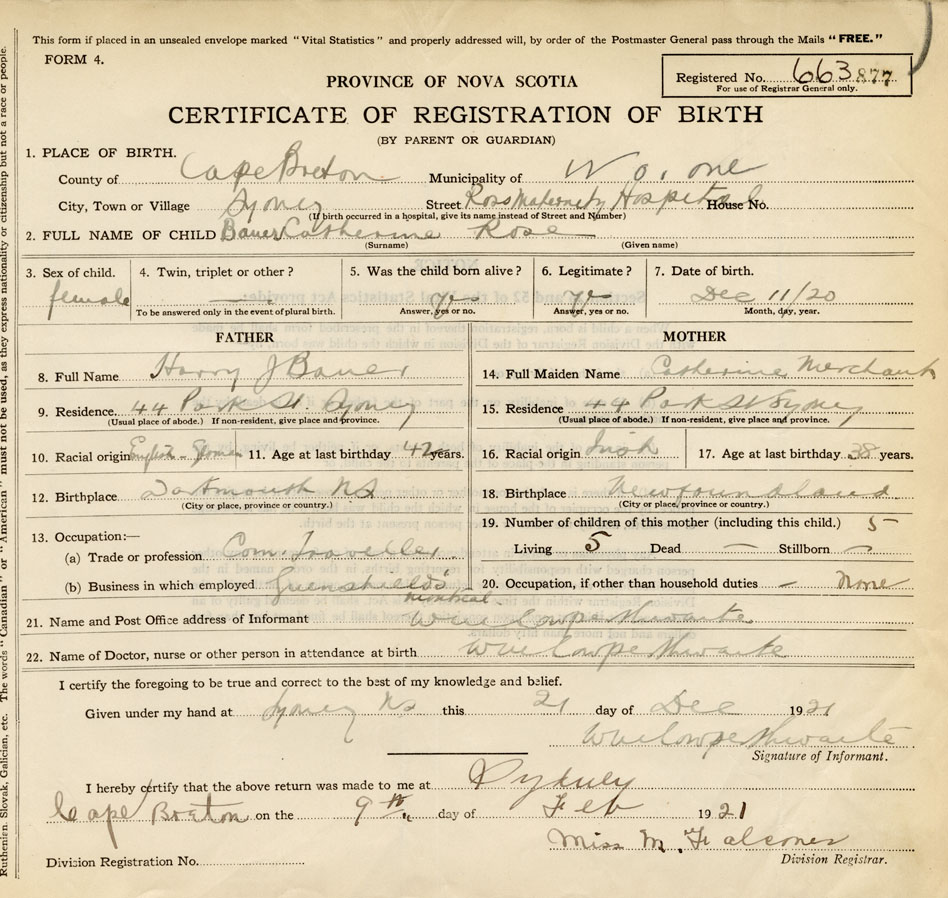 This form if placed in an unsealed envelope marked "Vital Statistics" and properly addressed will, by order of the Postmaster General pass through the Mails "FREE."
FORM 4.
Registered No. 663877
For use of Registrar General only.
PROVINCE OF NOVA SCOTIA
CERTIFICATE OF REGISTRATION OF BIRTH
(BY PARENT OR GUARDIAN)
1. PLACE OF BIRTH.
County of Cape Breton Municipality of one
City, Town or Village Sydney Street Ross Maternity Hospital House No.
(If birth occurred in a hospital, give its name instead of Street and Number)
2. FULL NAME OF CHILD Bauer Catherine Rose
(Surname) (Given name)
3. Sex of child. 4. Twin, triplet or other? 5. Was the child born alive? 6. Legitimate? 7. Date of birth.
female — yes yes Dec 11/20
To be answered only in the event of plural birth. Answer, yes or no. Answer, yes or no. Month, day, year.
FATHER MOTHER
8. Full Name Harry J Bauer 14. Full Maiden Name Catherine Merchant
9. Residence 44 Park St. Sydney 15. Residence 44 Park St Sydney
(Usual place of abode.) If non-resident, give place and province. (Usual place of abode.) If non-resident, give place and province.
10. Racial origin English - 11. Age at last birthday 42 years. 16. Racial origin Irish 17. Age at last birthday 38 years.
12. Birthplace Dartmouth NS 18. Birthplace Newfoundland
(City or place, province or country.) (City or place, province or country.)
13. Occupation:— 19. Number of children of this mother (including this child.) 5
(a) Trade or profession Com. Traveller Living 5 Dead — Stillborn —
(b) Business in which employed Greenshields 20. Occupation, if other than household duties - none
Montreal
21. Name and Post Office address of Informant
22. Name of Doctor, nurse or other person in attendance at birth
I certify the foregoing to be true and correct to the best of my knowledge and belief.
Given under my hand at Sydney NS this 21 day of Dec 1921
Signature of Informant.
I hereby certify that the above return was made to me at Sydney
Cape Breton on the 9th day of Feb 1921
Miss M. Falconer
Division Registration No. Division Registrar.
Ruthenien, Slovak, Galician, etc. The words "Canadian" or "American" must not be used, as they express nationality or citizenship but not a race or people.